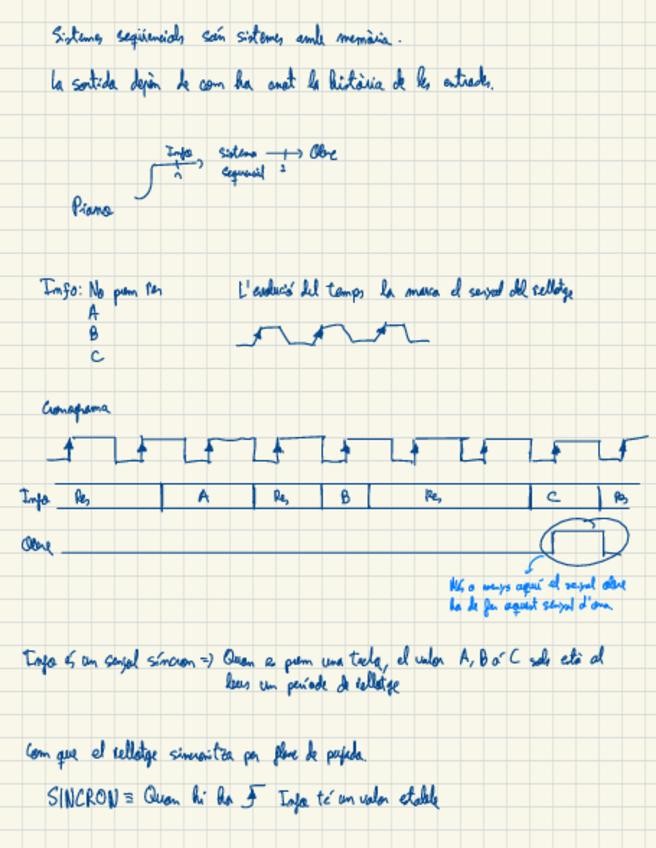 Sistemes seqüencials són sistemes amb memòria.
La sortida depèn de com ha anat la història de les entrades.
Info
n
sistema
seqüencial
1
Obre
Piano
Info: No prem res
A
B
C
L'evolució del temps la marca el senyal del rellotge
Cronograma
Info Res A Res B Res C Res
Obre
Més o menys aquí el senyal obre
ha de fer aquest senyal d'ona
Info és un senyal síncron => Quan es prem una tecla, el valor A, B o C sols està al
bus un període de rellotge
Com que el rellotge sincronitza per flanc de pujada.
SINCRON ≡ Quan hi ha Info té un valor estable